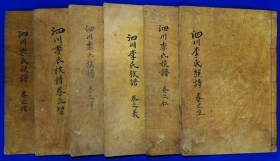 泗川李氏族譜 卷之
泗川李氏族譜 卷之仁
泗川李氏族譜 卷之義
泗川李氏族譜 卷之
泗川李氏族譜 卷之智
泗川李氏族譜 卷之